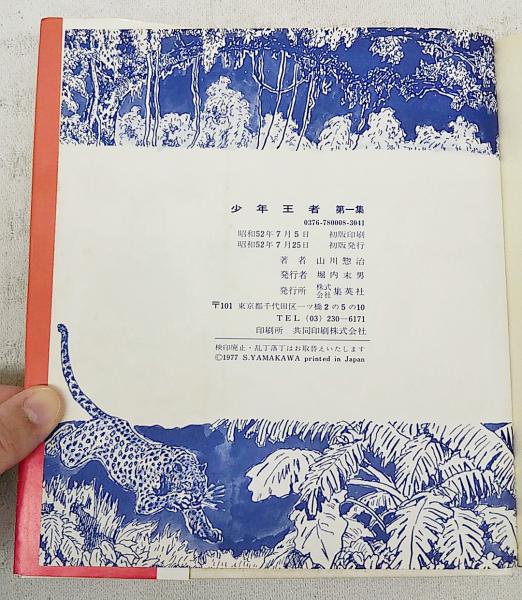 少年王者 第一集
0376-780008-3041
昭和52年7月5日 初版印刷
昭和52年7月25日 初版発行
著者 山川惣治
発行者 堀内末男
発行所 株式会社 集英社
〒101 東京都千代田区一ツ橋2の5の10
TEL (03) 230—6171
印刷所 共同印刷株式会社
検印廃止・乱丁落丁はお取替えいたします
©1977 S.YAMAKAWA printed in Japan